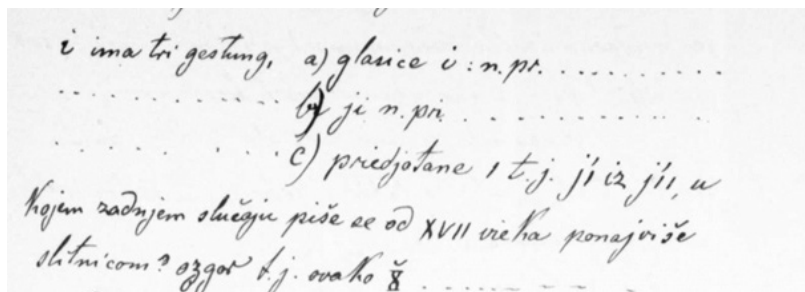 i ima tri geltung, a) glasice i : n.pr. . . . . . . . . . .
. . . . . . . . . . . . b) ji n. pr. . . . . . . . . . . .
. . . . . . . . . c) predjotane i t.j. jí iz jíı, u
kojem zadnjem slučaju piše se od XVII vieka ponajviše
slitnicom? ozgor t.j. ovako . . . . . . . . .